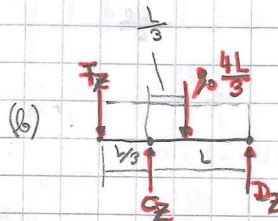 L/3
F_Z
p₀ 4L/3
(b)
L/3
L
C_Z
D_Z